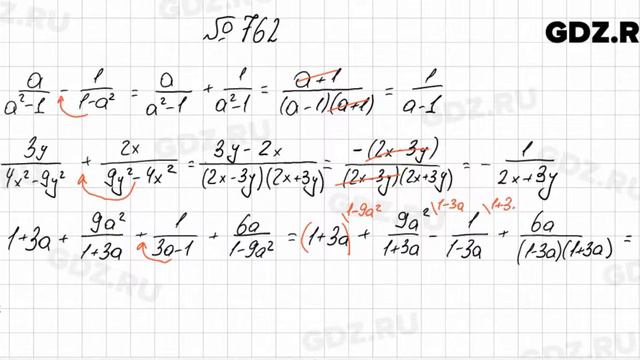 № 762
GDZ.R
a/(a²-1) - 1/(1-a²) = a/(a²-1) + 1/(a²-1) = (a+1)/((a-1)(a+1)) = 1/(a-1)
3y/(4x²-9y²) + 2x/(9y²-4x²) = (3y-2x)/((2x-3y)(2x+3y)) = -(2x-3y)/((2x-3y)(2x+3y)) = - 1/(2x+3y)
1+3a + 9a²/(1+3a) + 1/(3a-1) + 6a/(1-9a²) = (1+3a)\1-9a² + 9a²/(1+3a)\1-3a - 1/(1-3a)\1+3. + 6a/((1-3a)(1+3a)) =